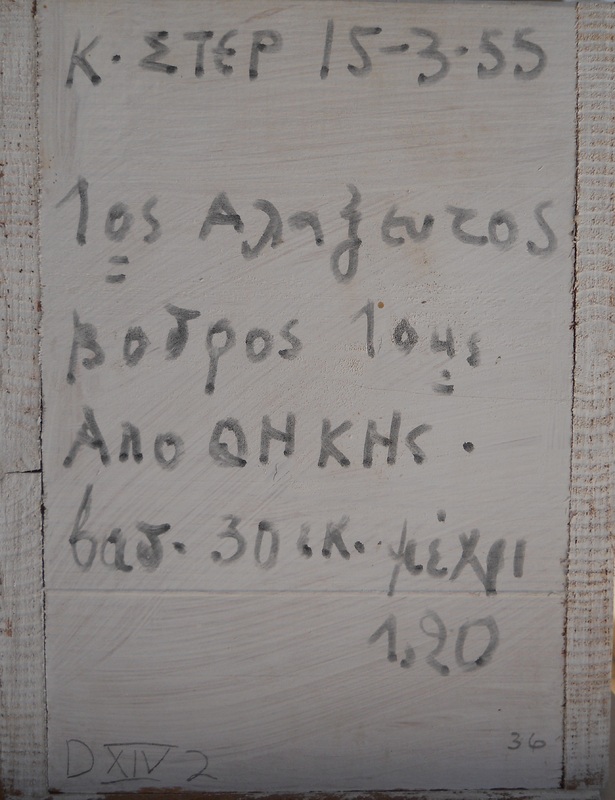 Κ. ΣΤΕΡ 15-3-55
1ος Αλαξευτος
βοθρος 1οης
ΑποΘΗΚΗς.
βαθ. 30 εκ. μέχρι
1.20
36
D XIV 2